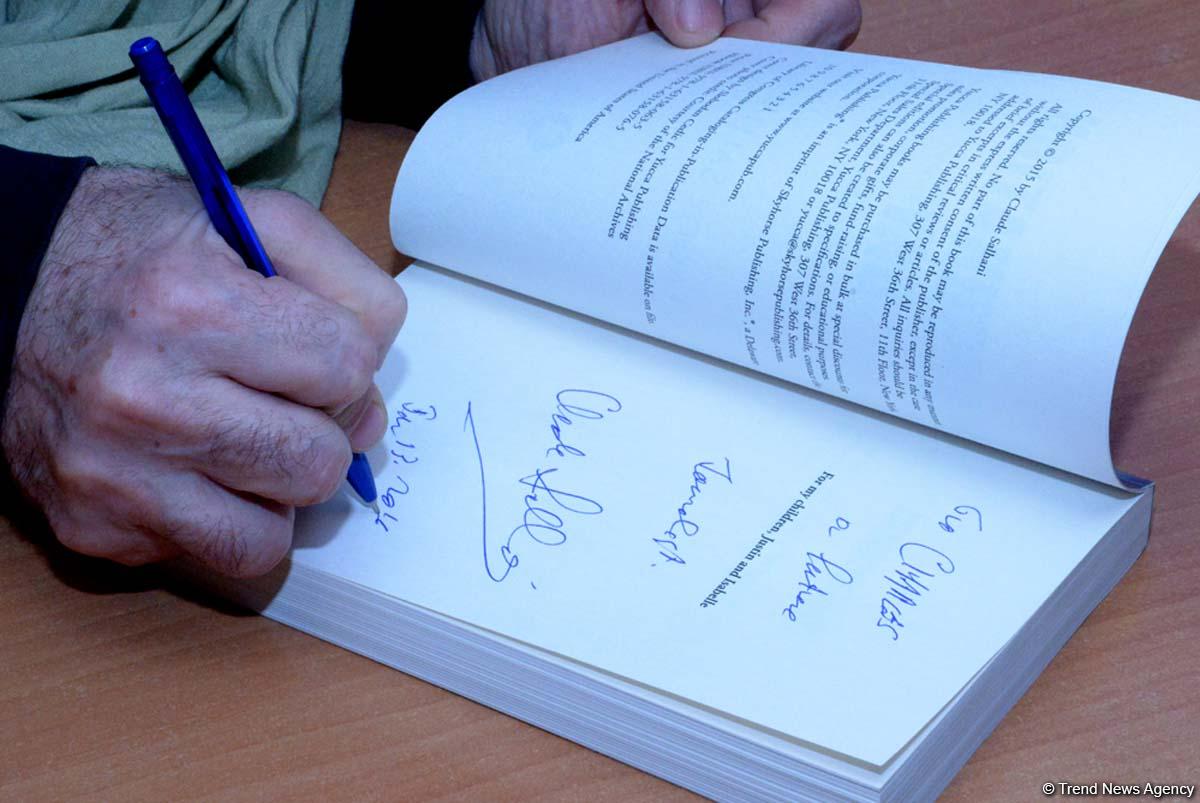 Copyright © 2015 by Claude Salhani
All rights reserved. No part of this book may be reproduced in any manner
without the express written consent of the publisher, except in the case
of brief excerpts in critical reviews or articles. All inquiries should be
addressed to Yucca Publishing, 307 West 36th Street, 11th Floor, New York,
NY 10018.
Yucca Publishing books may be purchased in bulk at special discounts for
sales promotion, corporate gifts, fund-raising, or educational purposes.
Special editions can also be created to specifications. For details, contact the
Special Sales Department, Yucca Publishing, 307 West 36th Street,
11th Floor, New York, NY 10018 or yucca@skyhorsepublishing.com.
Yucca Publishing is an imprint of Skyhorse Publishing, Inc.®, a Delaware
corporation.
Visit our website at www.yuccapub.com.
10 9 8 7 6 5 4 3 2 1
Library of Congress Cataloging-in-Publication Data is available on file.
Cover design by for Yucca Publishing
Cover photo credit: Courtesy of the National Archives
Print ISBN: 978-1-63158-063-5
Ebook ISBN: 978-1-63158-076-5
Printed in the United States of America
a
For my children, Justin and Isabelle
© Trend News Agency